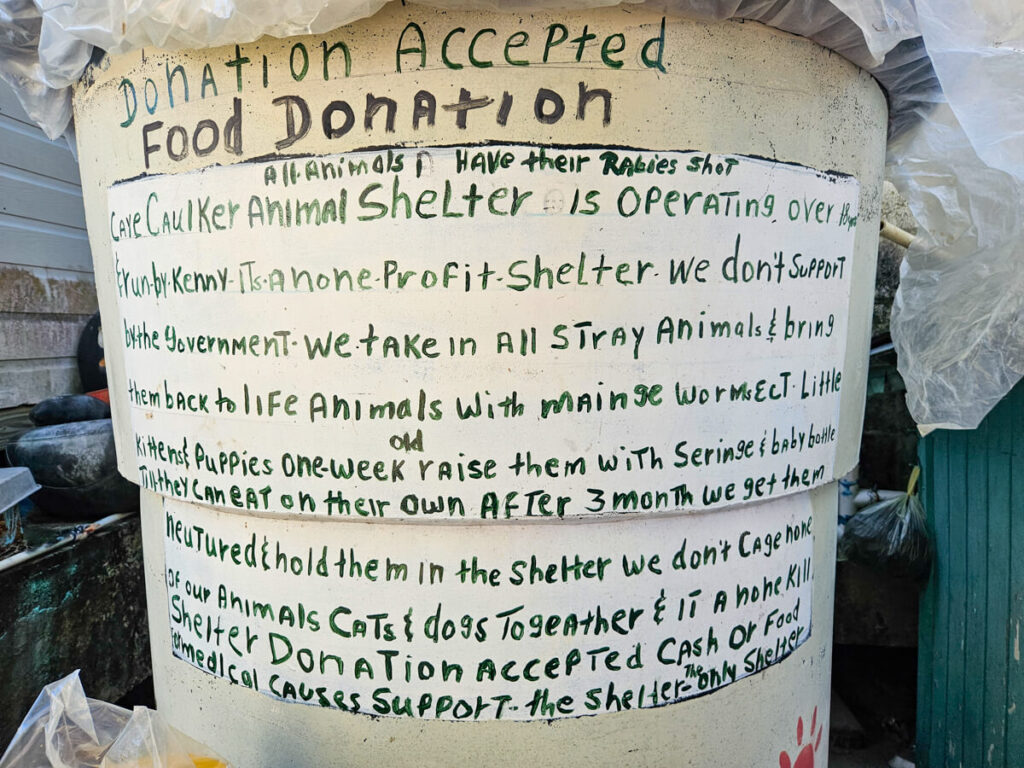 Donation Accepted
Food Donation
All.Animals HAVE their RABies SHOT
CAYE CAULKER ANIMAL SHELTER IS OPERATING OVER 18
& run-by-Kenny-ITs-A none-ProFit-Shelter. We don't SUPPORT
by-the government. We take in All STray Animals & bring
them BACK to liFe Animals With mainge WormsECT. Little
Kittens & Puppies One-Week old raise them WiTH Seringe & baby bottle
Till they CAN EAT on their own AFTer 3 month we get them
neuTured & hold them in the Shelter We don't Cage none
of our Animals CATs & dogs TogeATher & IT A none Kill
Shelter DonATion AccePTed CASH Or Food
For medical CAUSES SUPPORT-the Shelter-The only Shelter